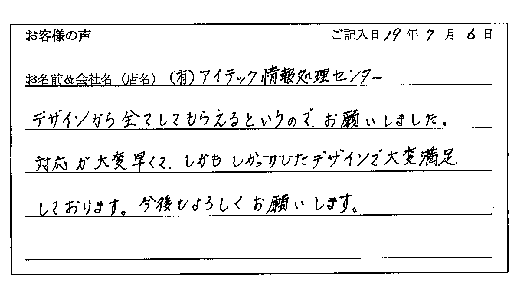 お客様の声 ご記入日 19 年 7 月 6 日
お名前&会社名(店名) (有)アイテック情報処理センター
デザインから全てしてもらえるというので、お願いしました。
対応が大変早くて、しかもしっかりしたデザインで大変満足
しております。今後もよろしくお願いします。